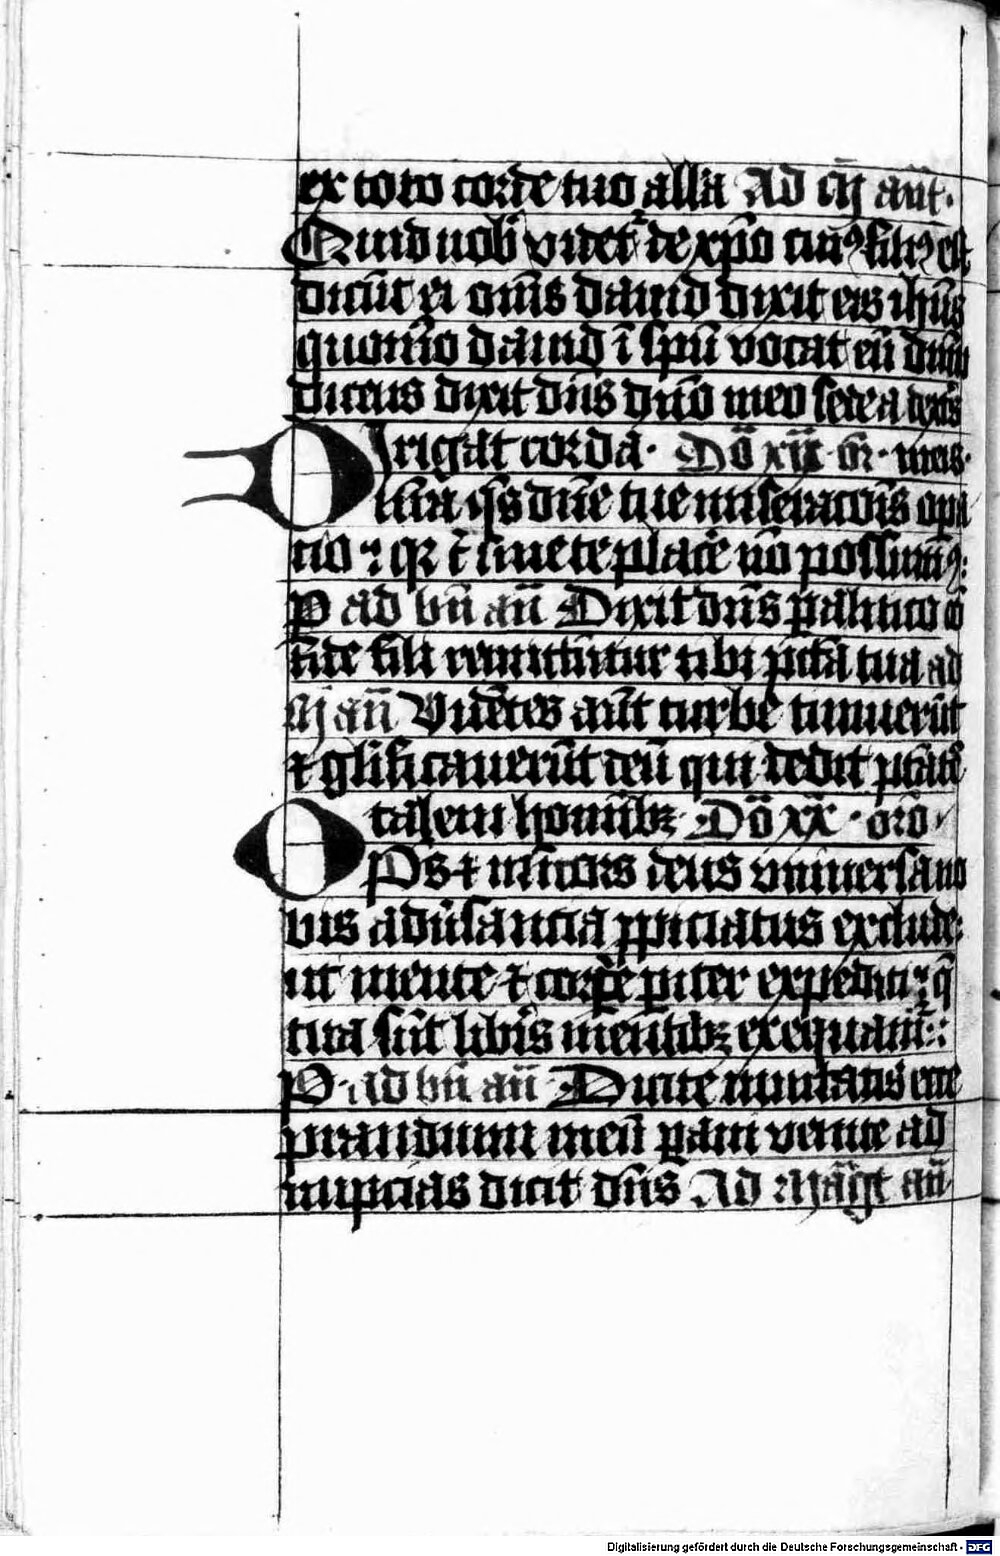 ex toto corde tuo all'a Ad m̄ ant̄.
Quid uob̄ videt̄ de xp̄o cui⁹ fili⁹ est
dicūt ei om̄s dauid dixit eis ih̄us
quom̄o dauid ī sp̄u vocat eū dn̄m
dicens dixit dn̄s dn̄o meo sede a dext̄s
Dirigat corda. Dō xix or̄. meis.
n̄ra q̄s dn̄e tue miserac̄ois opa
tio
p ad bn̄ an̄ Dixit dn̄s palitico cō
fide fili remittūtur tibi pctā tua ad
m̄ an̄ Videtes aūt turbe timuerūt
⁊ glificauerūt deū qui dedit ptātē
talem homībꝫ Dō xx. orō.
Ops ⁊ m̄icors deus vniuersa no
bis adūsancia ppiciatus exclude:
ut mente ⁊ corpē piter expediti q̄
tua sūt libīs mentibꝫ exequam̄:
P. ad bn̄ an̄ Dicite inuitatis ecce
prandium meū paui venite ad
nupcias dicit dn̄s Ad magt an̄
Digitalisierung gefördert durch die Deutsche Forschungsgemeinschaft - DFG